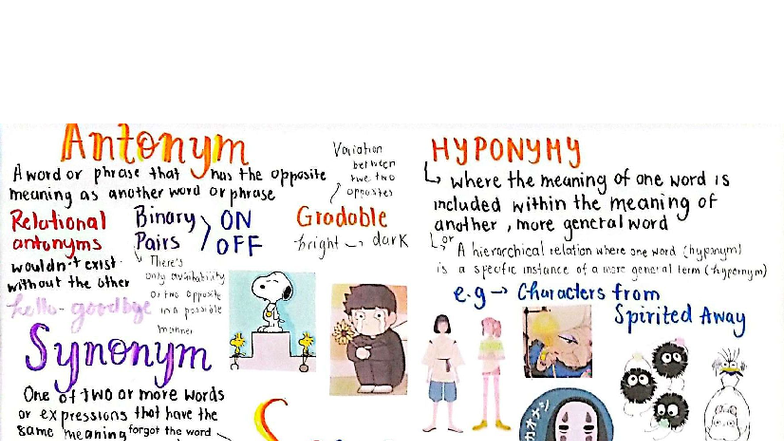 Antonym
A word or phrase that has the opposite
meaning as another word or phrase
Relational
antonyms
wouldn't exist
without the other
hello - goodbye
Binary
Pairs
ON
OFF
There's
only availability
or two opposite
in a possible
manner
Variation
between
two
opposites
Gradable
bright → dark
Synonym
One of two or more words
or expressions that have the
same meaning
forgot the word
HYPONYMY
where the meaning of one word is
included within the meaning of
another, more general word
or
A hierarchical relation where one word (hyponym)
is a specific instance of a more general term (hypernym)
e.g → Characters from
Spirited Away
カオナシ